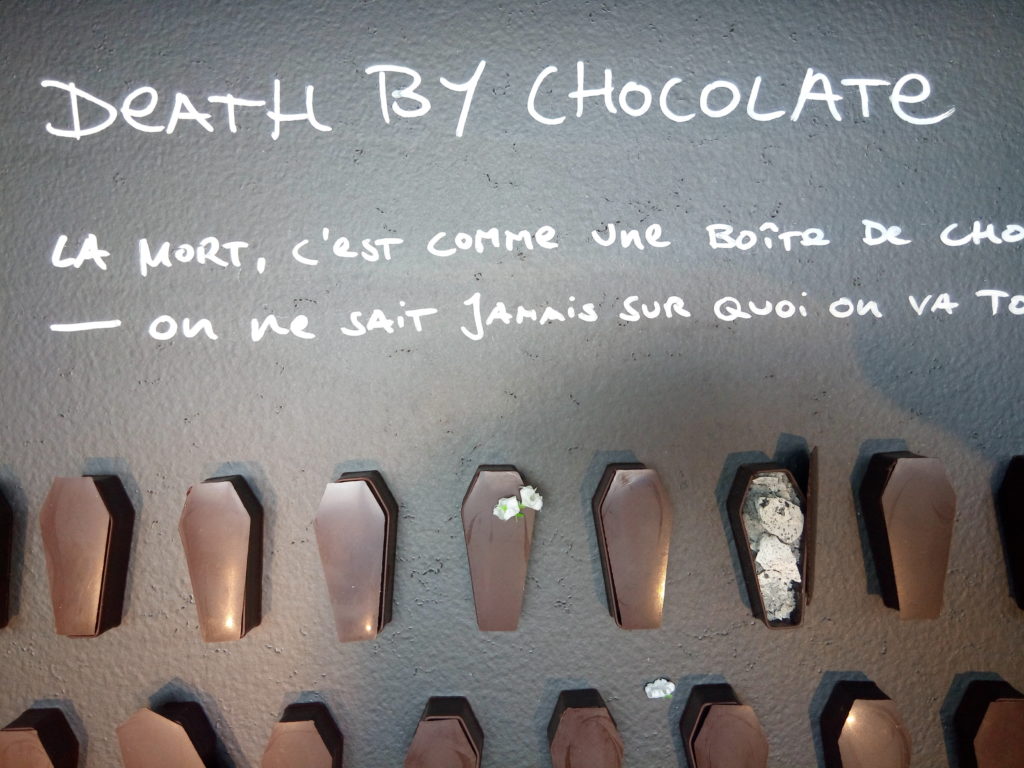 DEATH BY CHOCOLATE
LA MORT, C'EST COMME UNE BOÎTE DE CHO
— ON NE SAIT JAMAIS SUR QUOI ON VA TO